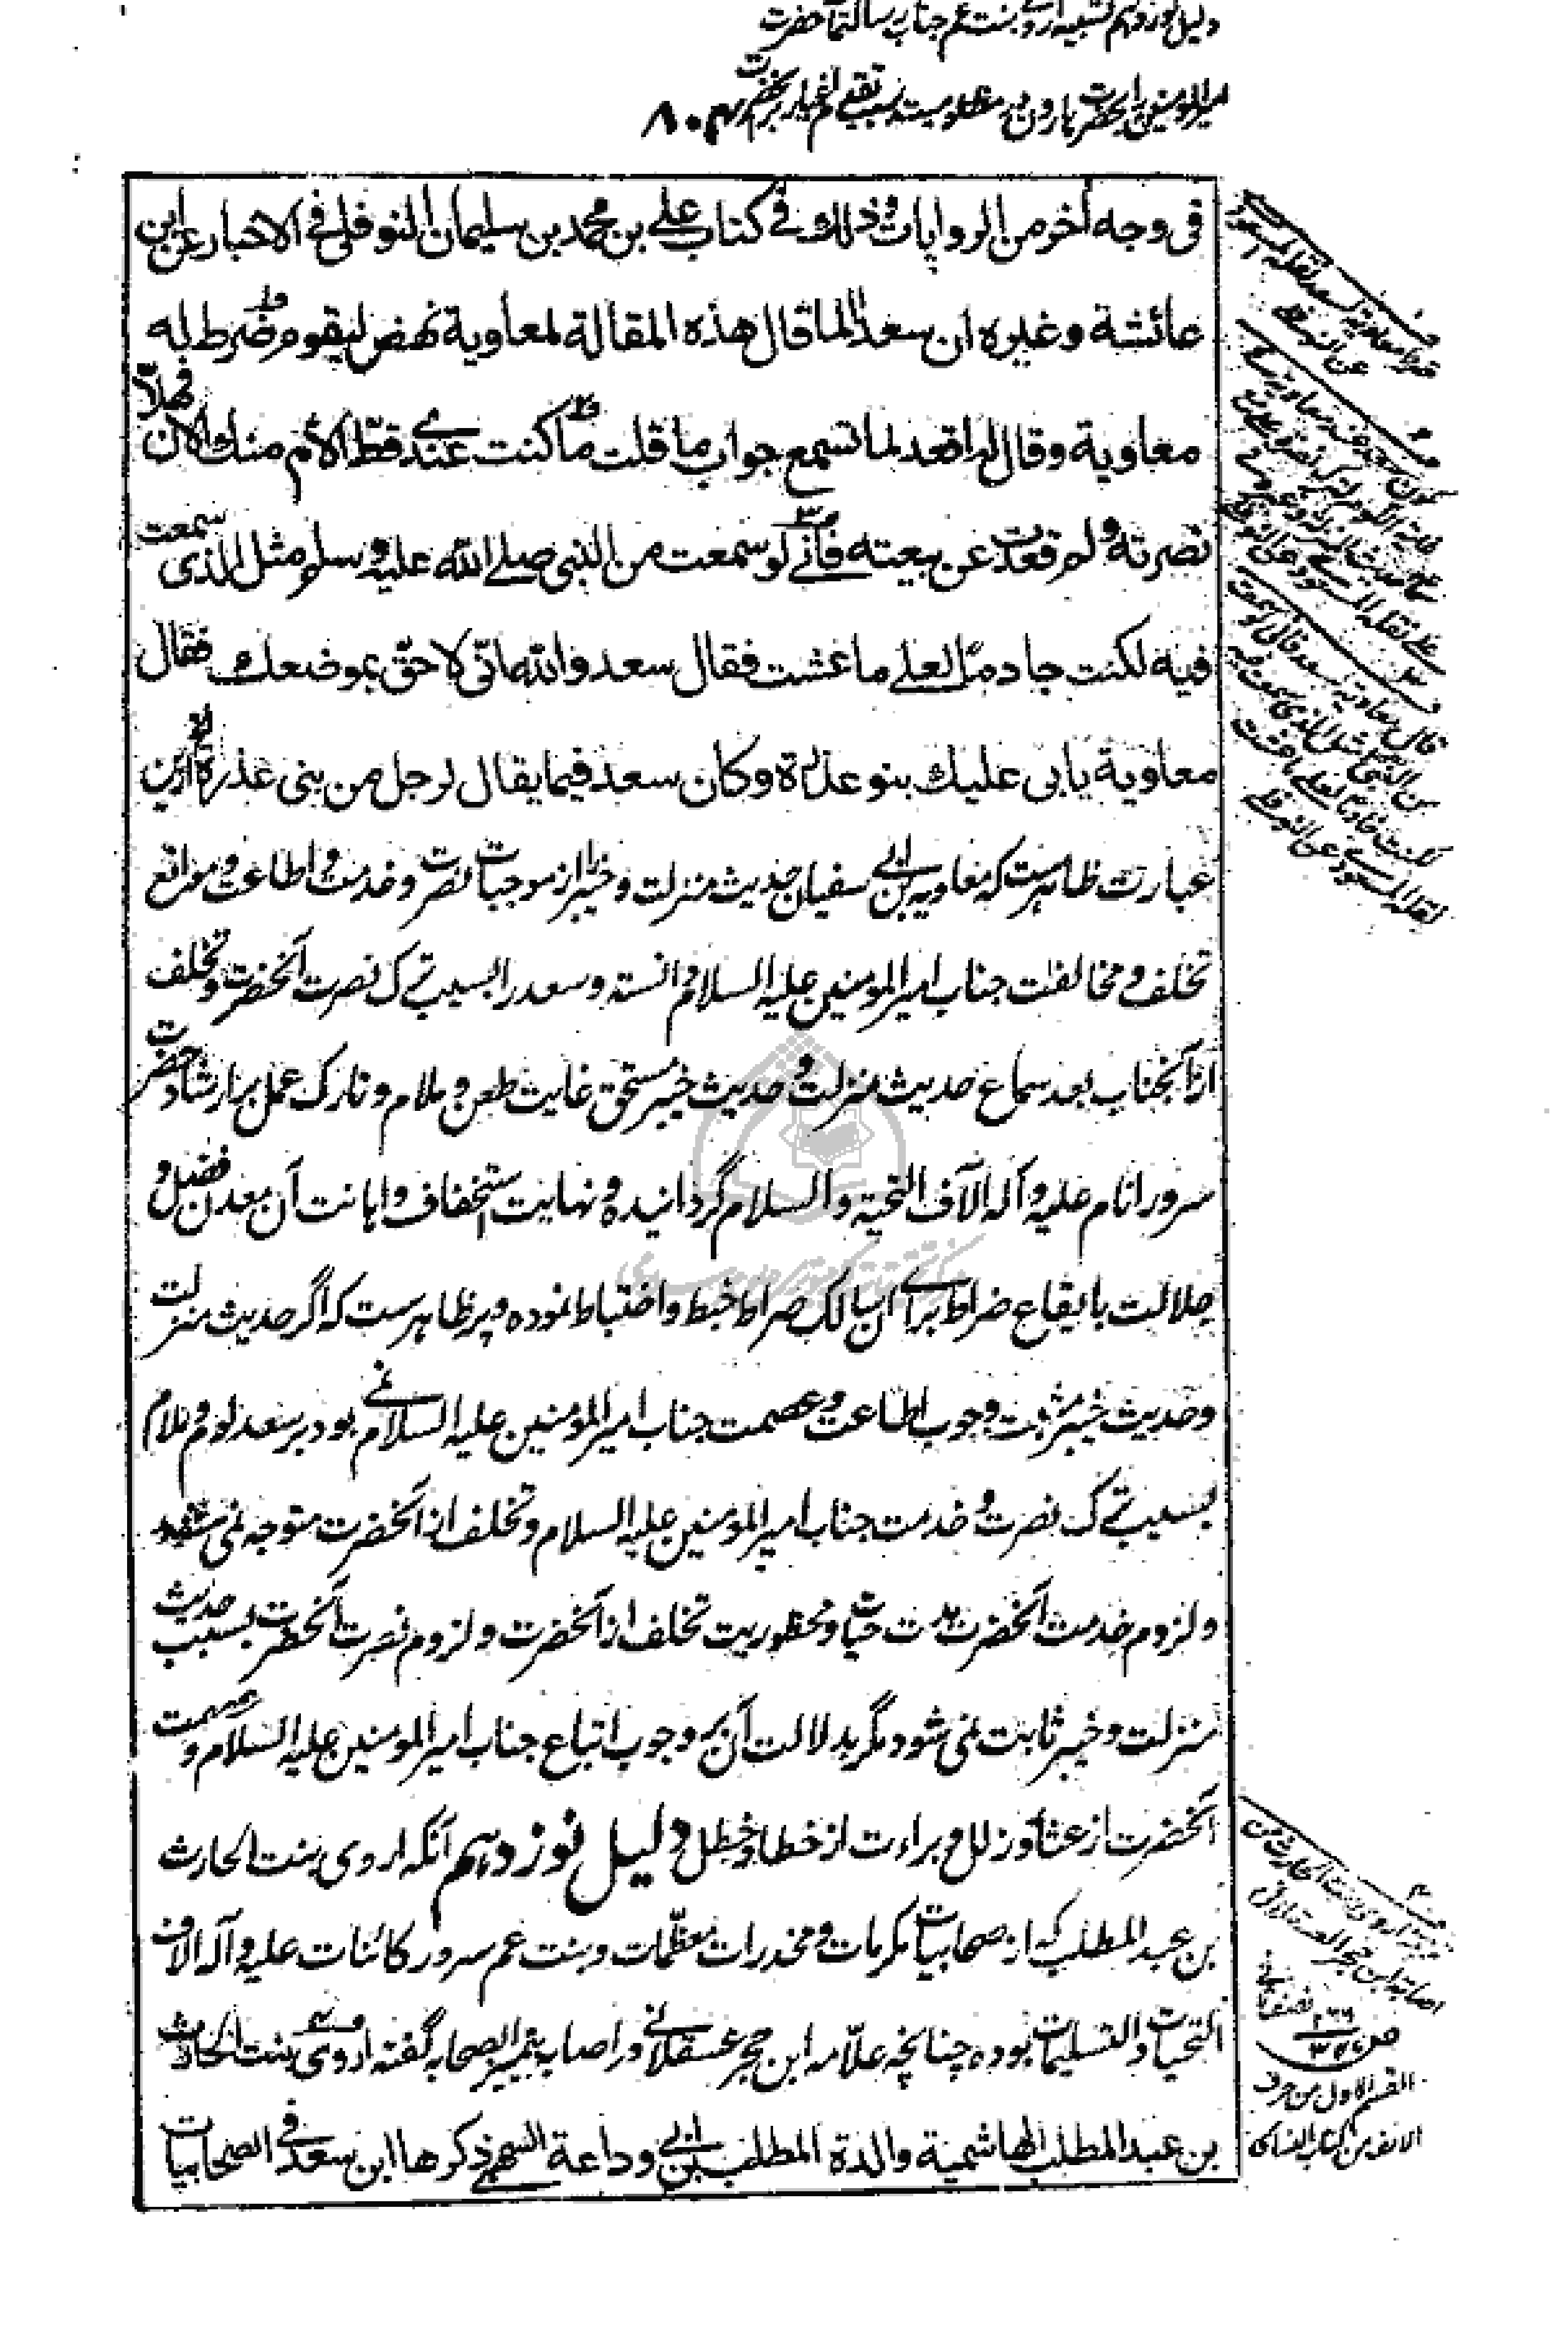 دلیل نوزدهم تشبیه اروی بنت عم جناب رسالتمآب حضرت
امیرالمومنین را بحضرت هارون در مظلومیت بسبب تقدم اغیار بر آنحضرت ۸۰۴
فی وجه آخر من الروایات وذلك فی کتاب علی بن محمد بن سلیمان النوفلی فی الاخبار عن ابن
عائشة وغیره ان سعدا لما قال هذه المقالة لمعاویة نهض لیقوم ضرط له
معاویة وقال له اقعد لما تسمع جواب ما قلت ما کنت عندی قط الأم منك الآن فهلا
نصرته ولم قعدت عن بیعته فانی لو سمعت من النبی صلی الله علیه وسلم مثل الذی سمعت
فیه لکنت خادما لعلی ما عشت فقال سعد والله انی لاحق بموضعك فقال
معاویة یابی علیك بنو عذرة وکان سعد فیما یقال لرجل من بنی عذرة انتهی ازین
عبارت ظاهرست که معاویه بن ابی سفیان حدیث منزلت وخیبر را از موجبات نصرت وخدمت واطاعت وموانع
تخلف ومخالفت جناب امیرالمومنین علیه السلام دانسته وسعد را بسبب ترک نصرت آنحضرت وتخلف
از آنجناب بعد سماع حدیث منزلت وحدیث خیبر مستحق غایت طعن وملام وتارک عمل بر ارشاد حضرت
سرور انام علیه وآله آلاف التحیة والسلام گردانیده ونهایت استخفاف واهانت آن معدن فضل و
جلالت بایقاع ضراط برای آن سالک صراط خبط واختباط نموده وپر ظاهرست که اگر حدیث منزلت
وحدیث خیبر مثبت وجوب اطاعت وعصمت جناب امیرالمومنین علیه السلام نمی بود بر سعد لوم وملام
بسبب ترک نصرت وخدمت جناب امیرالمومنین علیه السلام وتخلف از آنحضرت متوجه نمی شد
ولزوم خدمت آنحضرت مدت حیات ومحظوریت تخلف از آنحضرت ولزوم نصرت آنحضرت بسبب حدیث
منزلت وخیبر ثابت نمی شود مگر بدلالت آن بر وجوب اتباع جناب امیرالمومنین علیه السلام وعصمت
آنحضرت از عثار وزلل وبراءت از خطا وخطل دلیل نوزدهم آنکه اروی بنت الحارث
بن عبد المطلب که از صحابیات مکرمات ومخدرات معظمات وبنت عم سرور کائنات علیه وآله آلاف
التحیات والتسلیمات بوده چنانچه علامه ابن حجر عسقلانی در اصابه بتمییز الصحابه گفته اروی بنت الحارث
بن عبد المطلب الهاشمیة والدة المطلب بن ابی وداعة السهمی ذکرها ابن سعد فی الصحابیات
ضرط معاویة لسعد نقله المسعودی
عن النوفلی
قال معاویة لسعد فانی لو سمعت
من النبی مثل الذی سمعت فیه
لکنت خادما لعلی ما عشت
نقله المسعودی عن النوفلی
ترجمة اروی بنت الحارث من
اصابة ابن حجر العسقلانی
القسم الاول من حرف
الالف من کتاب النساء